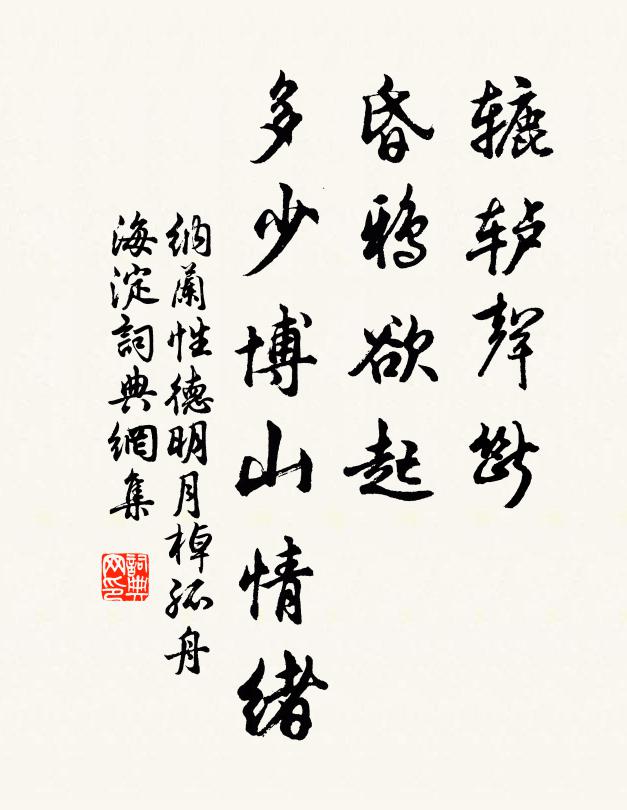 辘轳聲斷
昏鴉欲起
多少博山情緒
納蘭性德明月棹孤舟
海淀詞典網集
詞典网印